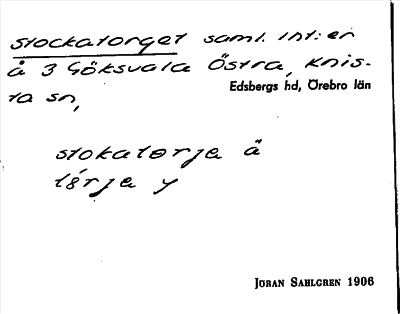 Stockatorget saml. Int: en
å 3 Göksvala Östra, Knis-
ta sn,
Edsbergs hd, Örebro län
stokatorja å
tórja y
JÖRAN SAHLGREN 1906